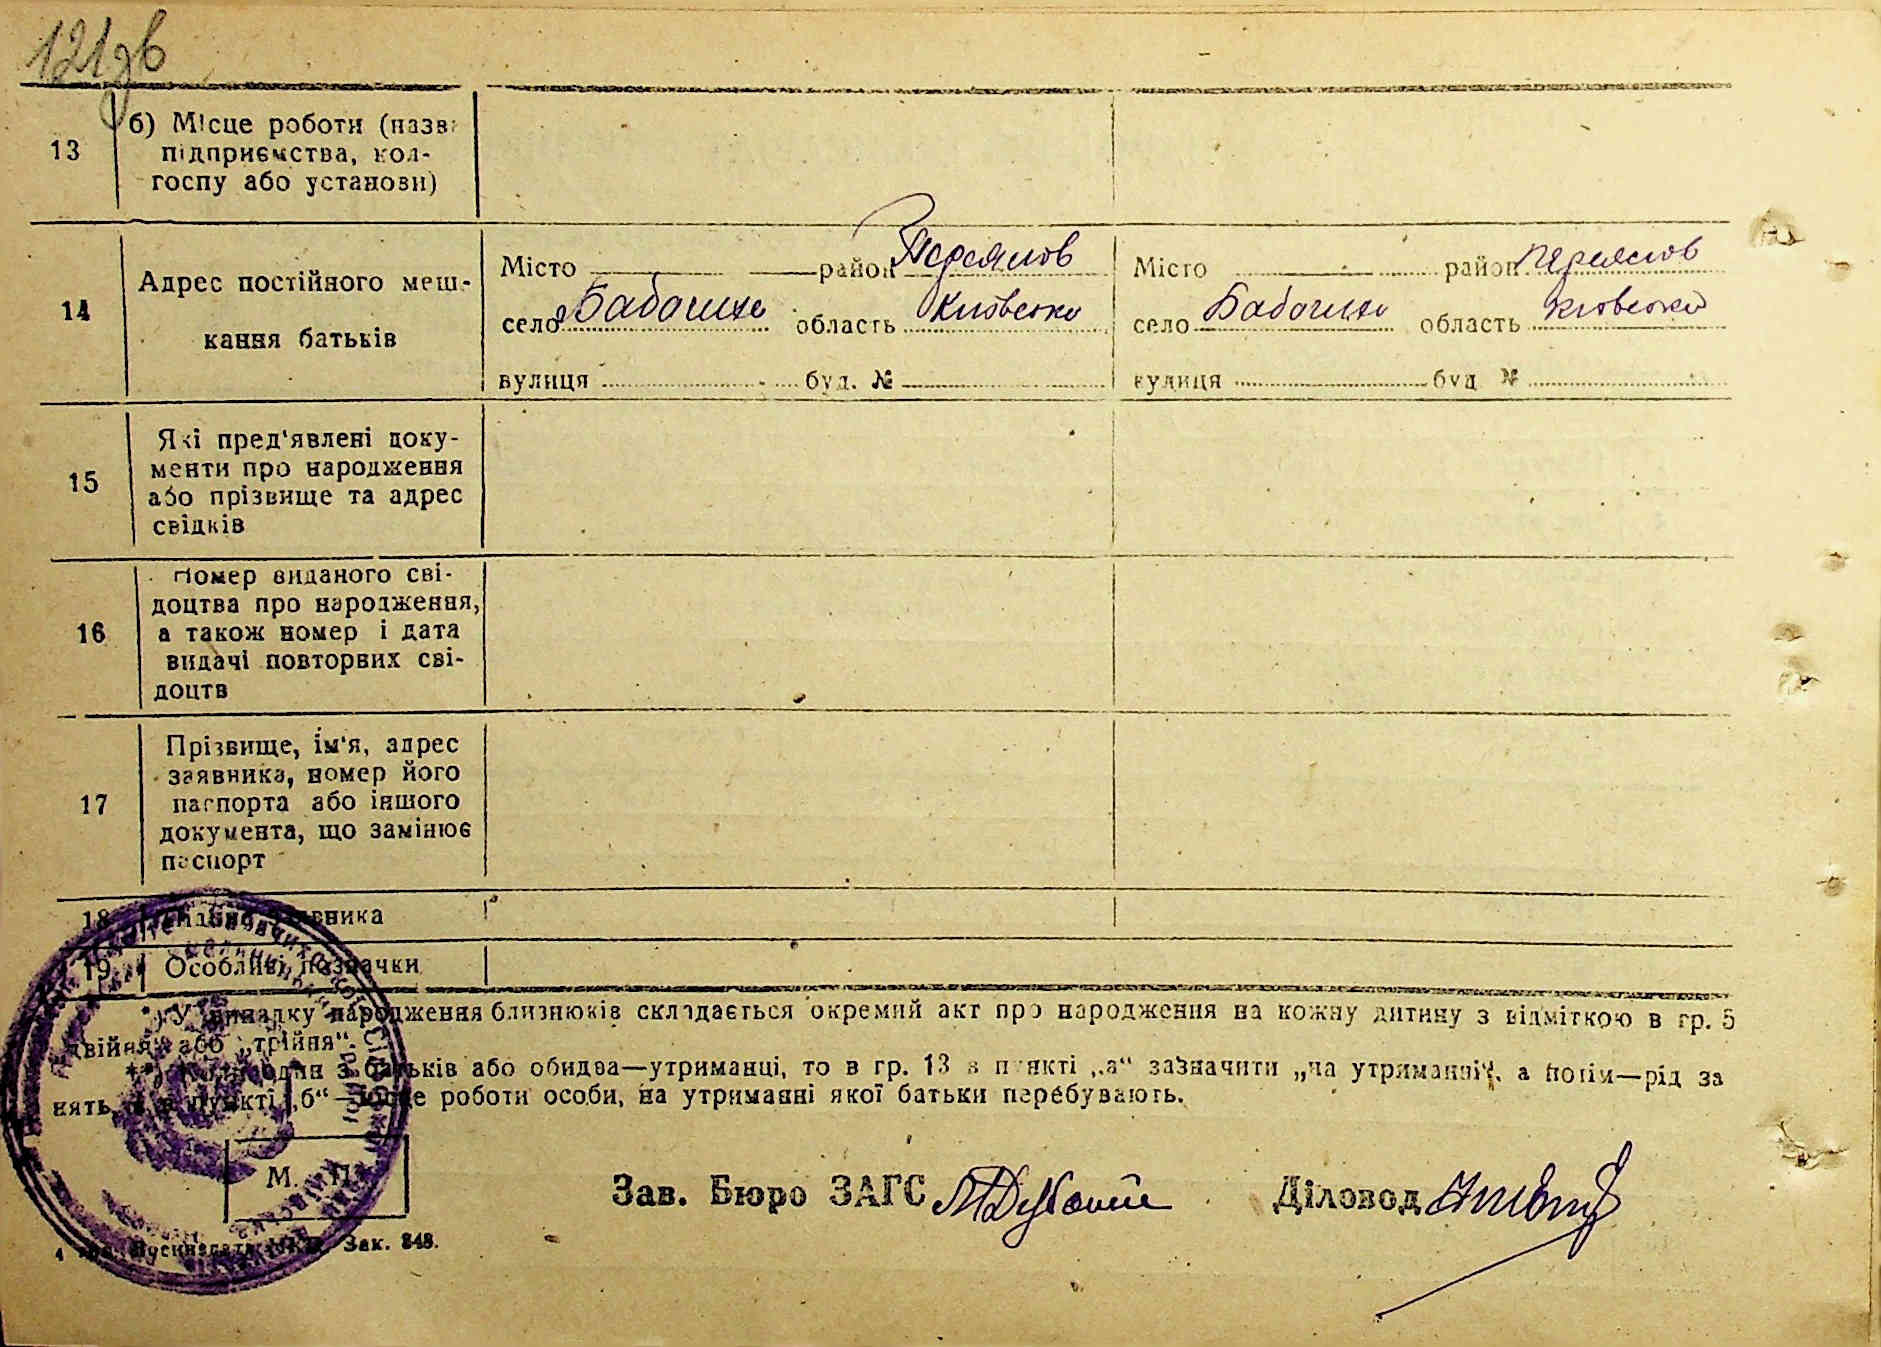 121зв
13
б) Місце роботи (назва
підприємства, кол-
госпу або установи)
14
Адрес постійного меш-
кання батьків
Місто район Переяслов
село Бабачиха область Київська
вулиця буд. №
Місто район Переяслов
село Бабачиха область Київська
вулиця буд №
15
Які пред'явлені доку-
менти про народження
або прізвище та адрес
свідків
16
Номер виданого сві-
доцтва про народження,
а також номер і дата
видачі повторних сві-
доцтв
17
Прізвище, ім'я, адрес
заявника, номер його
паспорта або іншого
документа, що замінює
паспорт
18 Підпис заявника
19 Особливі позначки
*) У випадку народження близнюків складається окремий акт про народження на кожну дитину з відміткою в гр. 5
„двійня" або „трійня".
**) Коли один з батьків або обидва—утриманці, то в гр. 13 в пункті „а" зазначити „на утриманні", а потім—рід за
нять, а в пункті „б"—місце роботи особи, на утриманні якої батьки перебувають.
М. П.
Зав. Бюро ЗАГС Діловод
Зак. 848.